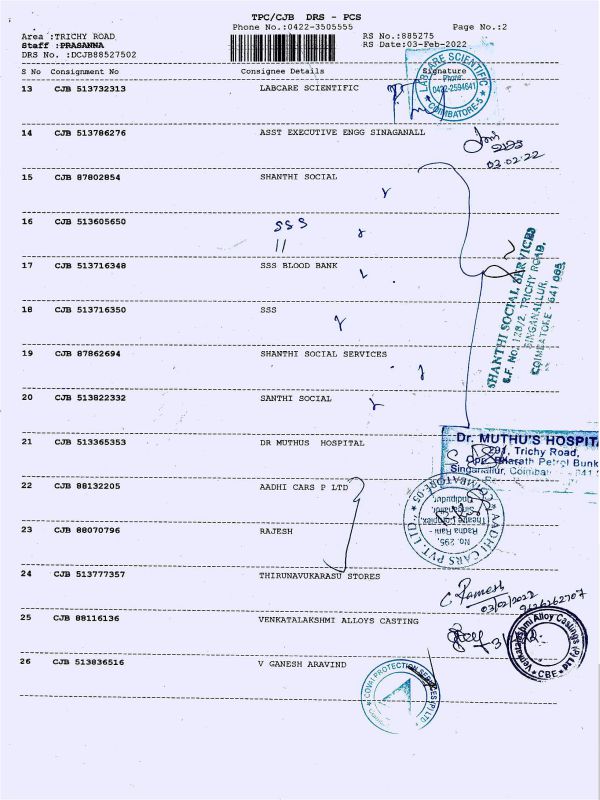 TPC/CJB DRS - PCS
Phone No.:0422-3505555 Page No.:2
Area :TRICHY ROAD RS No.:885275
Staff :PRASANNA RS Date:03-Feb-2022
DRS No. :DCJB88527502
S No Consignment No Consignee Details Signature
13 CJB 513732313 LABCARE SCIENTIFIC
LABCARE SCIENTIFIC
Phone:
0422-2594641
COIMBATORE-5
14 CJB 513786276 ASST EXECUTIVE ENGG SINAGANALL
03.02.22
15 CJB 87802854 SHANTHI SOCIAL
16 CJB 513605650
SSS
17 CJB 513716348 SSS BLOOD BANK
SHANTHI SOCIAL SERVICES
S.F. NO. 128/2, TRICHY ROAD,
SINGANALLUR,
COIMBATORE - 641 005.
18 CJB 513716350 SSS
19 CJB 87862694 SHANTHI SOCIAL SERVICES
20 CJB 513822332 SANTHI SOCIAL
21 CJB 513365353 DR MUTHUS HOSPITAL
Dr. MUTHU'S HOSPITA
Trichy Road,
Opp. Bharath Petrol Bunk
Singanallur, Coimbat
22 CJB 88132205 AADHI CARS P LTD
AADHI CARS PVT. LTD.
COIMBATORE-05
No. 295,
Radha Rani
Theatre Complex,
Singanallur,
23 CJB 88070796 RAJESH
24 CJB 513777357 THIRUNAVUKARASU STORES
C Ramesh
03/02/2022
25 CJB 88116136 VENKATALAKSHMI ALLOYS CASTING
Venkatalakshmi Alloy Castings (P) Ltd
CBE
26 CJB 513836516 V GANESH ARAVIND
COVAI PROTECTION SERVICES (P) LTD